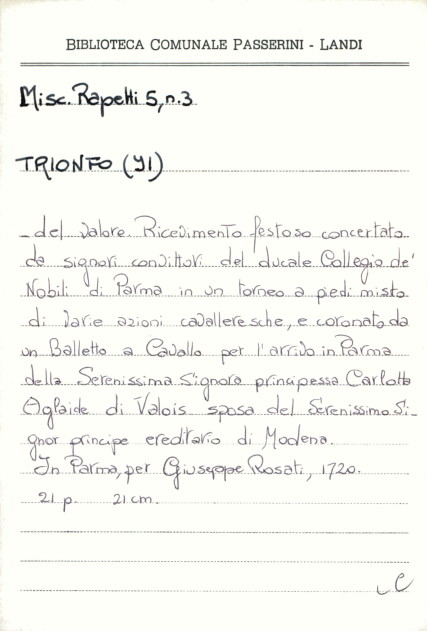 BIBLIOTECA COMUNALE PASSERINI - LANDI
Misc. Rapetti 5, n.3
TRIONFO (Il)
_ del valore. Ricevimento festoso concertato
da signori convittori del ducale Collegio de'
Nobili di Parma in un torneo a piedi misto
di varie azioni cavalleresche, e coronato da
un Balletto a Cavallo per l'arrivo in Parma
della Serenissima Signora principessa Carlotta
Aglaide di Valois sposa del Serenissimo Si-
gnor principe ereditario di Modena.
In Parma, per Giuseppe Rosati, 1720.
21 p. 21 cm.